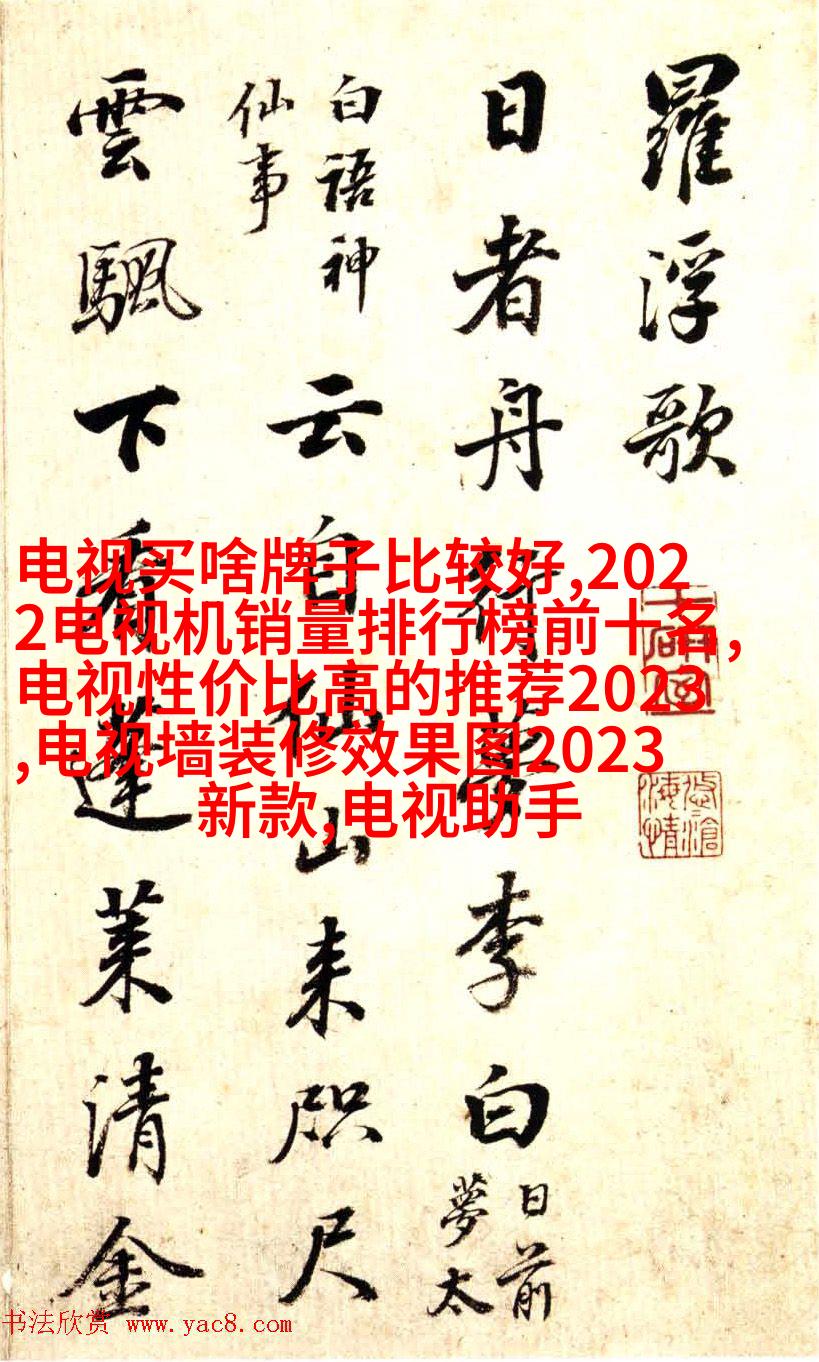 羅浮歌
日者舟行夢李白 日前夢太
白語神仙事 云自仙山来咫尺
雲颿下看蓬萊清金
电视买啥牌子比较好,202
2电视机销量排行榜前十名,
电视性价比高的推荐2023
,电视墙装修效果图2023
新款,电视助手
书法欣赏 www.yac8.com